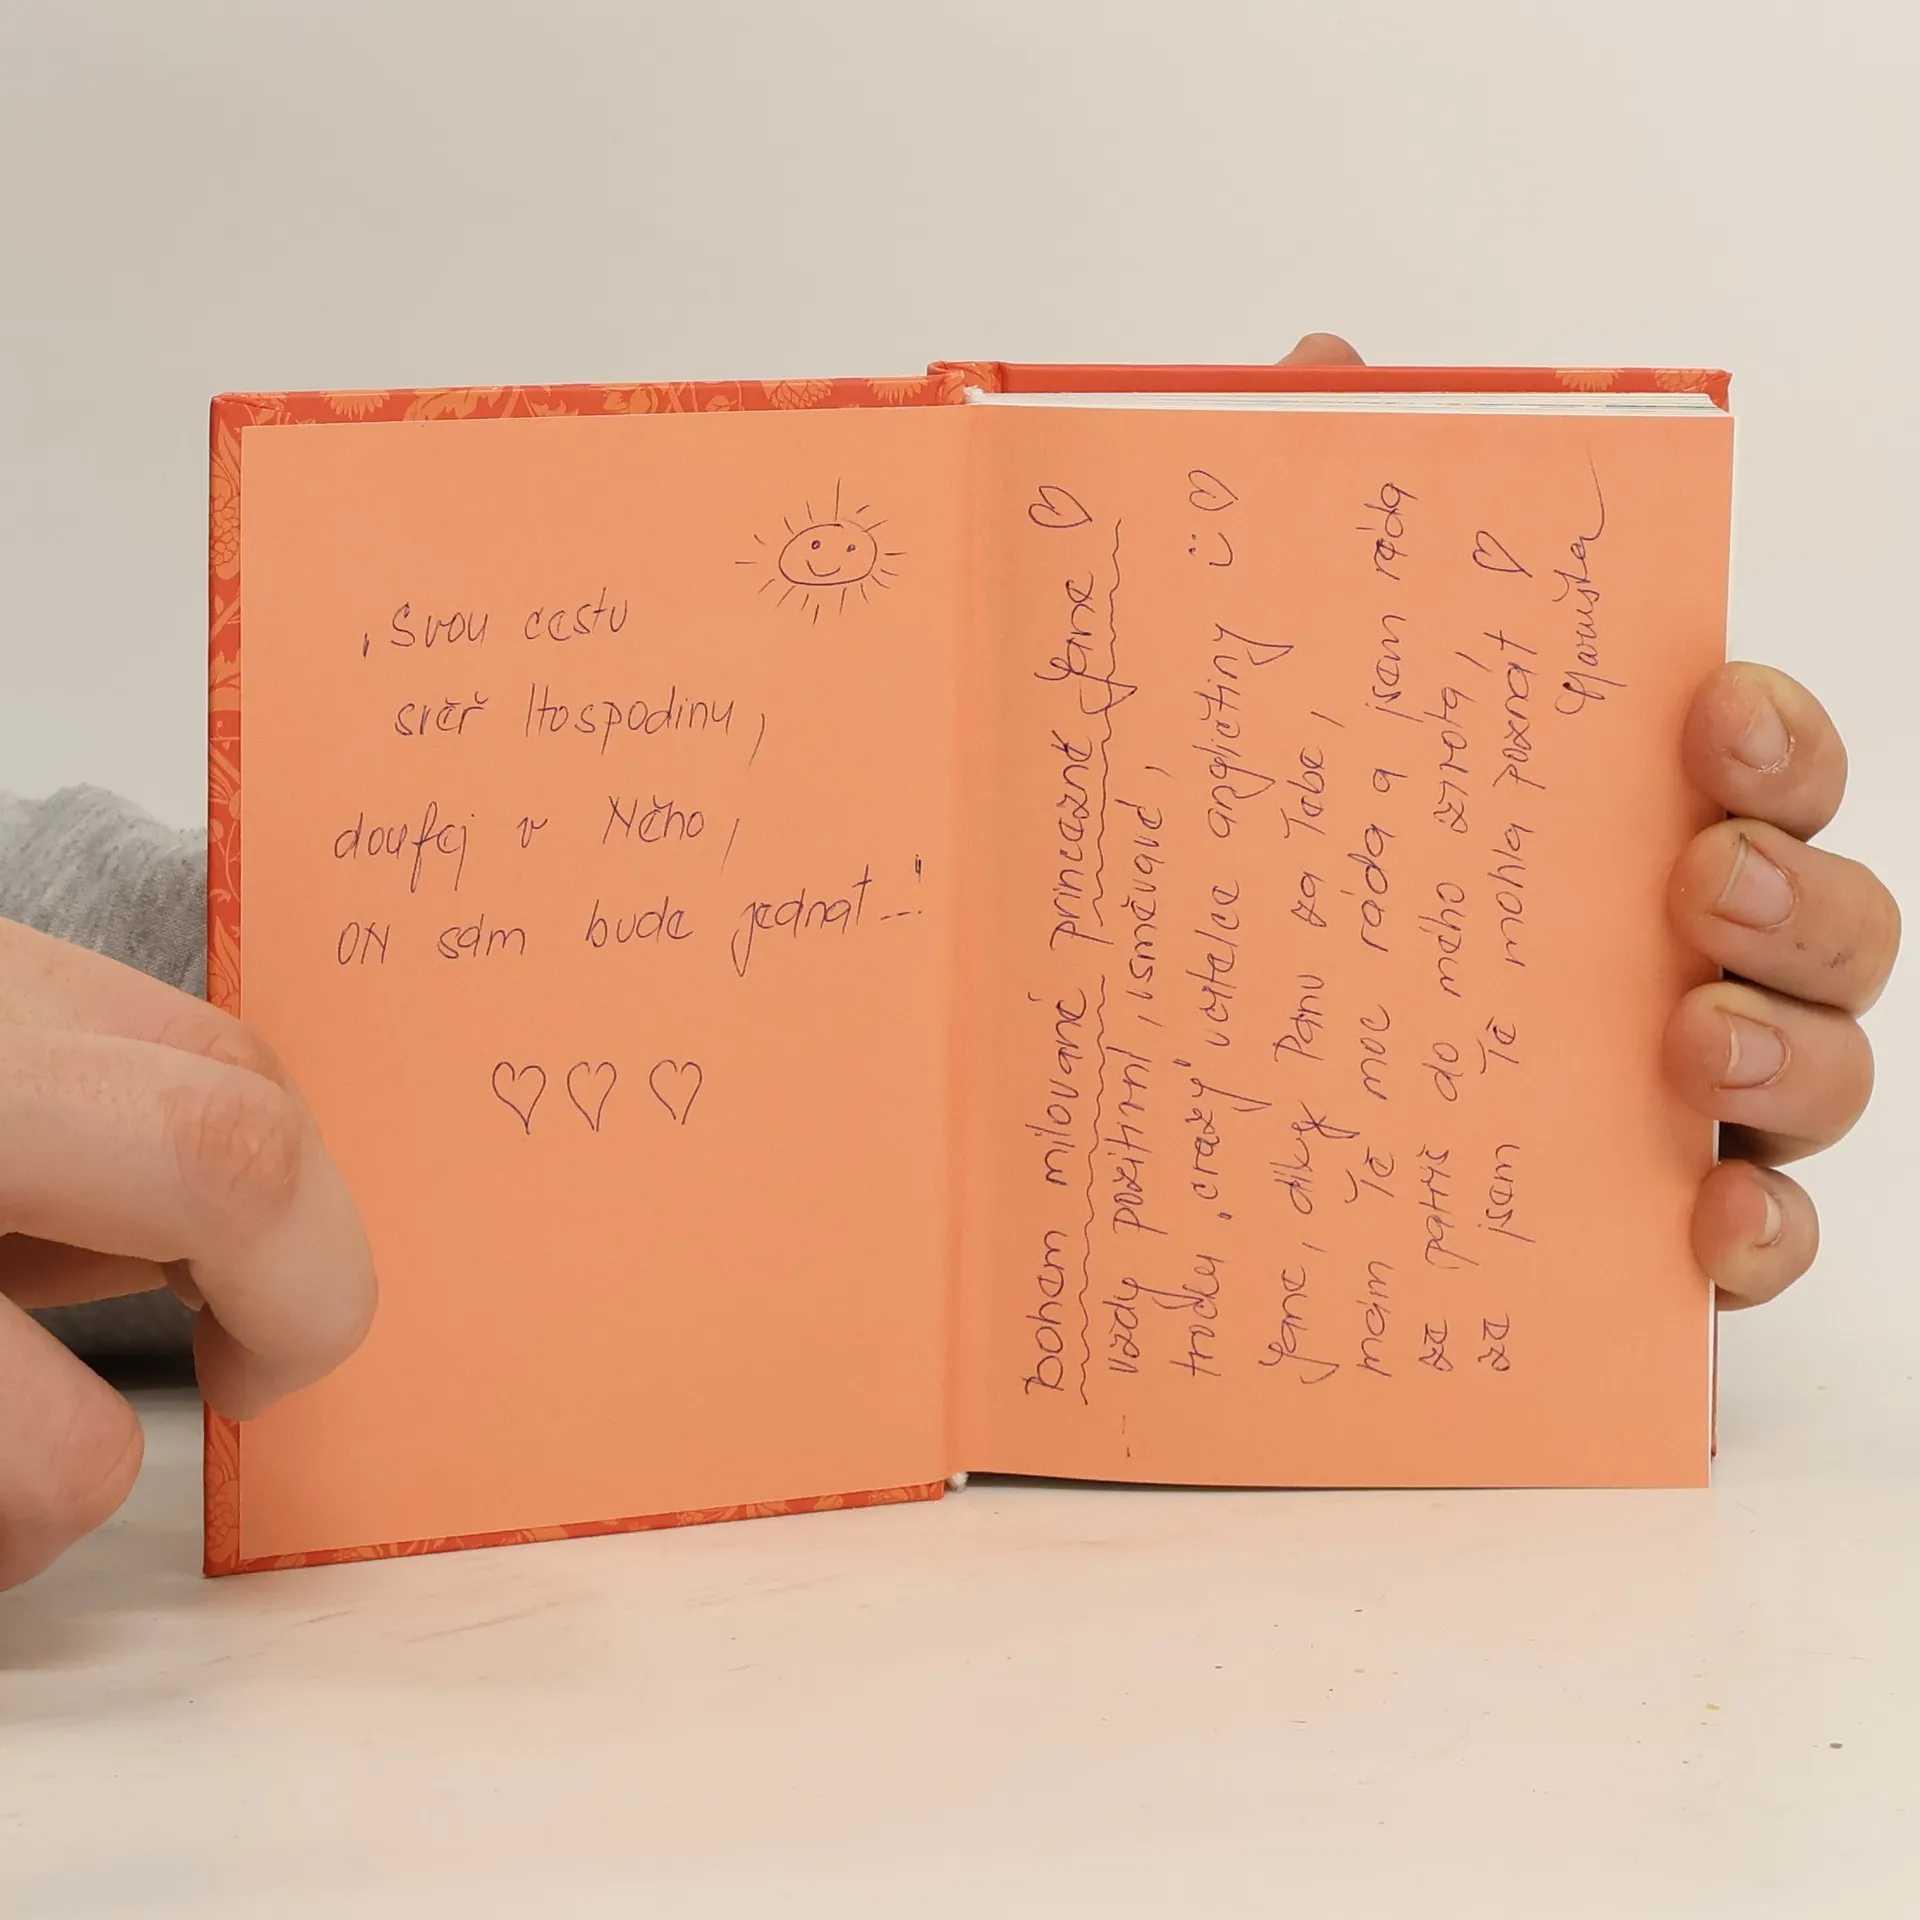 ‚Svou cestu
svěř Hospodinu,
doufej v Něho,
ON sám bude jednat...'
Bohem milované princezně Jane
vždy pozitivní, usměvavé,
trochu ‚crazy' učitelce angličtiny
Jane, díky Pánu za Tebe,
mám Tě moc ráda a jsem ráda
že patříš do mého života,
že jsem Tě mohla poznat
Maruška